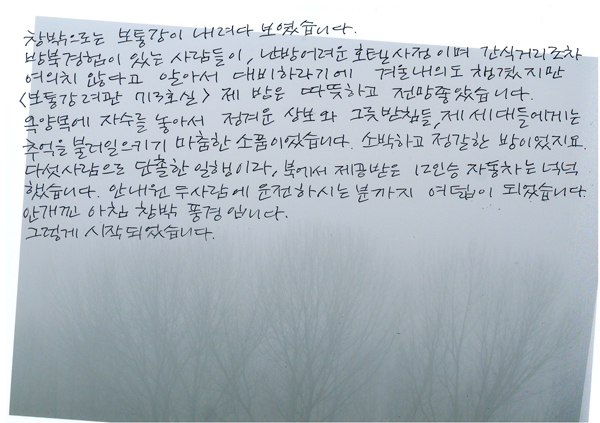 창밖으로는 보통강이 내려다 보였습니다.
방북경험이 있는 사람들이, 난방어려운 호텔사정이며 간식거리조차
여의치 않다고 알아서 대비하라기에 겨울내의도 챙겼지만
<보통강려관 713호실> 제 방은 따뜻하고 전망좋았습니다.
옥양목에 자수를 놓아서 정겨운 상보와 그릇받침들, 제 세대들에게는
추억을 불러일으키기 마춤한 소품이었습니다. 소박하고 정갈한 방이었지요.
다섯사람으로 단촐한 일행이라, 북에서 제공받은 12인승 자동차는 넉넉
했습니다. 안내원 두사람에 운전하시는 분까지 여덟이 되었습니다.
안개낀 아침 창밖 풍경입니다.
그렇게 시작되었습니다.